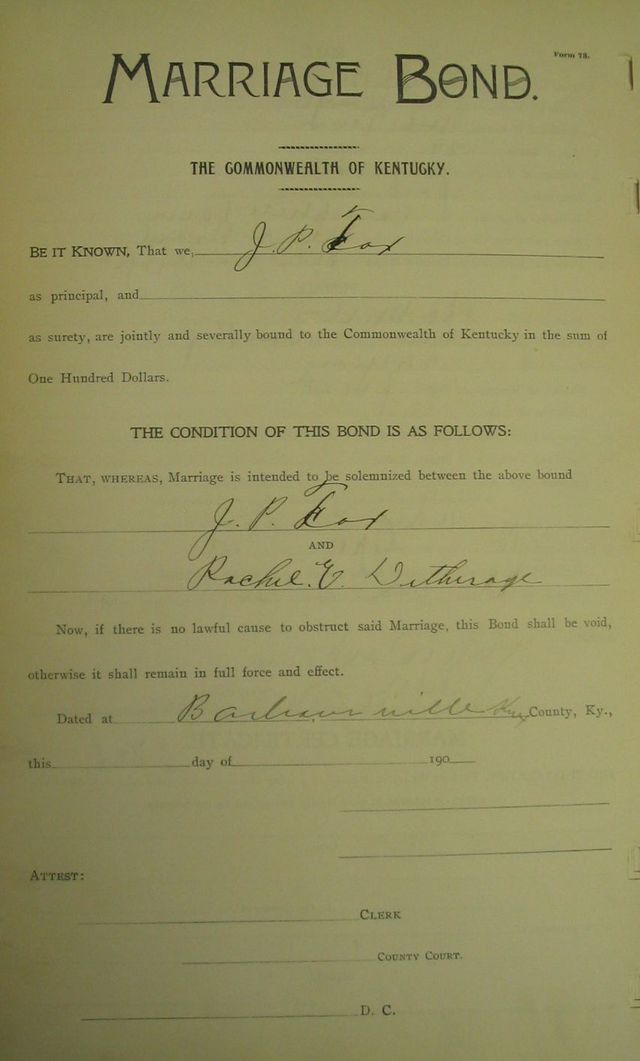 Form 78.
MARRIAGE BOND.
THE COMMONWEALTH OF KENTUCKY.
BE IT KNOWN, That we, J. P. Fox
as principal, and
as surety, are jointly and severally bound to the Commonwealth of Kentucky in the sum of
One Hundred Dollars.
THE CONDITION OF THIS BOND IS AS FOLLOWS:
THAT, WHEREAS, Marriage is intended to be solemnized between the above bound
J. P. Fox
AND
Rachel. E. Witherage
Now, if there is no lawful cause to obstruct said Marriage, this Bond shall be void,
otherwise it shall remain in full force and effect.
Dated at Barbourville County, Ky.,
this day of 190
ATTEST:
CLERK
COUNTY COURT.
D. C.